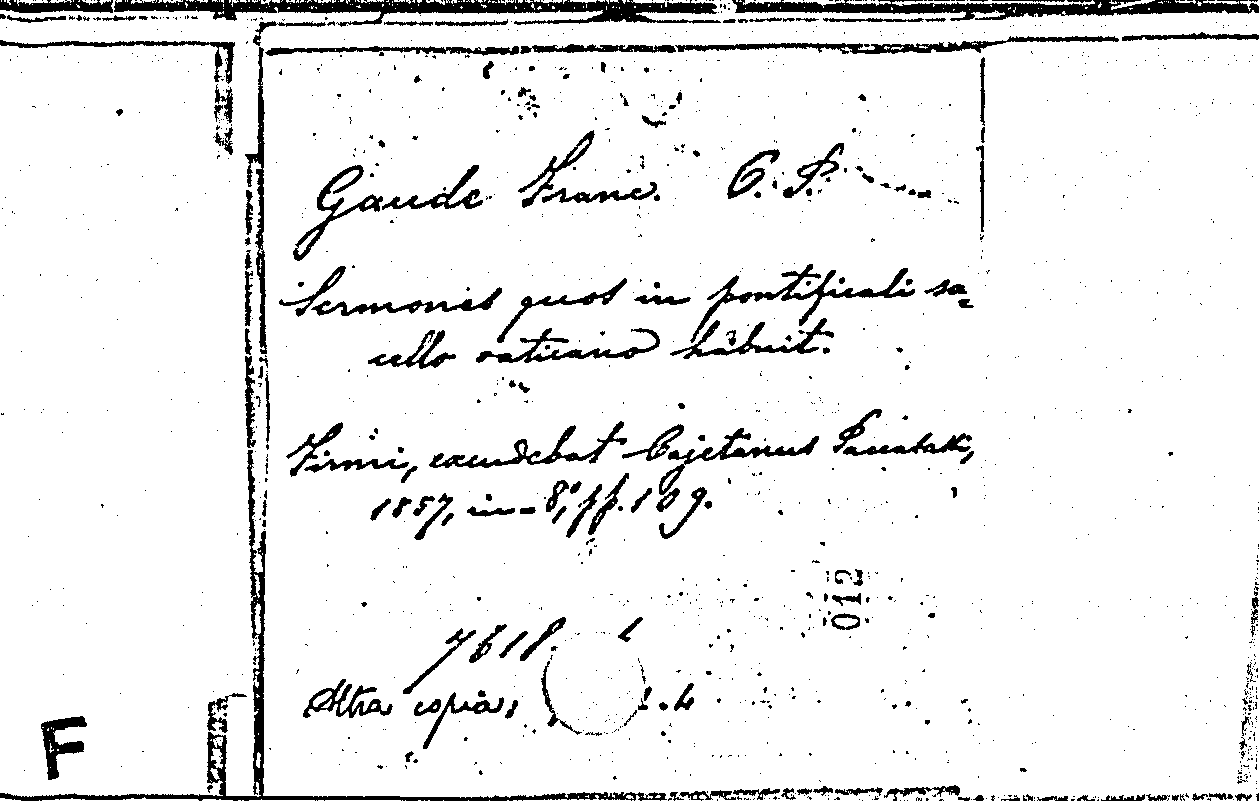 Gaude Franc. O. P.
Sermones quos in pontificali sa-
cello vaticano habuit.
Firmi, excudebat Cajetanus Paccasassi,
1857, in-8°, pp. 109.
012
7618.
Altra copia:
F